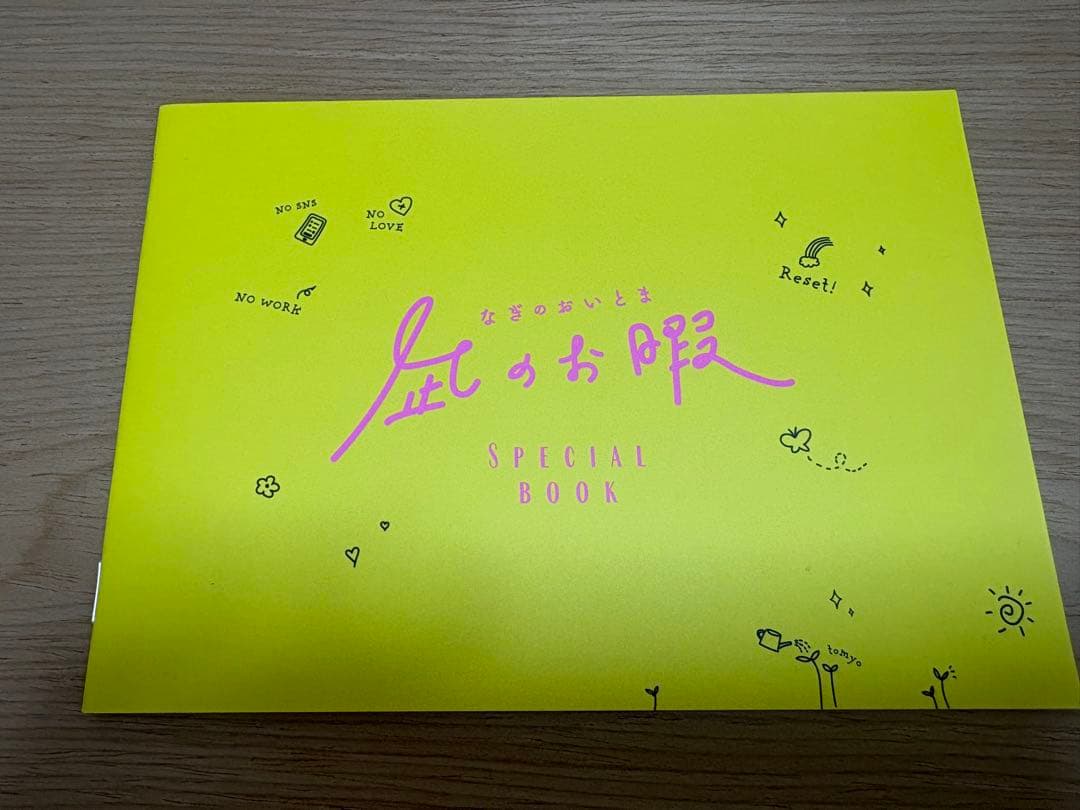 NO SNS
NO
LOVE
NO WORK
Reset!
なぎのおいとま
凪のお暇
SPECIAL
BOOK
tomyo